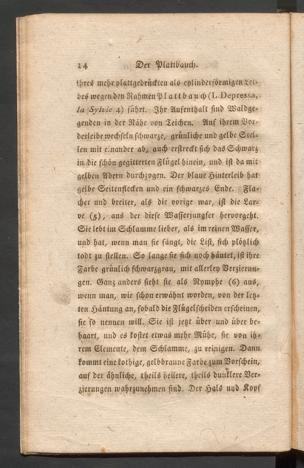 14 Der Plattbauch.
ihres mehr plattgedrückten als cylinderförmigen Lei-
bes wegen den Nahmen Plattbauch (L. Depressa,
la Sylvie 4) führt. Ihr Aufenthalt sind Waldge-
genden in der Nähe von Teichen. Auf ihrem Vor-
derleibe wechseln schwarze, grünliche und gelbe Stel-
len mit einander ab, auch erstreckt sich das Schwarz
in die schön gegitterten Flügel hinein, und ist da mit
gelben Adern durchzogen. Der blaue Hinterleib hat
gelbe Seitenflecken und ein schwarzes Ende. Fla-
cher und breiter, als die vorige war, ist die Lar-
ve (5), aus der diese Wasserjungfer hervorgeht.
Sie lebt im Schlamme lieber, als im reinen Wasser,
und hat, wenn man sie fängt, die List, sich plötzlich
todt zu stellen. So lange sie sich noch häutet, ist ihre
Farbe grünlich schwarzgrau, mit allerley Verzierun-
gen. Ganz anders sieht sie als Nymphe (6) aus,
wenn man, wie schon erwähnt worden, von der letz-
ten Häutung an, sobald die Flügelscheiden erscheinen,
sie so nennen will. Sie ist jetzt über und über be-
haart, und es kostet etwas mehr Mühe, sie von ih-
rem Elemente, dem Schlamme, zu reinigen. Dann
kommt eine kothige, gelbbraune Farbe zum Vorschein,
auf der ähnliche, theils hellere, theils dunklere Ver-
zierungen wahrzunehmen sind. Der Hals und Kopf